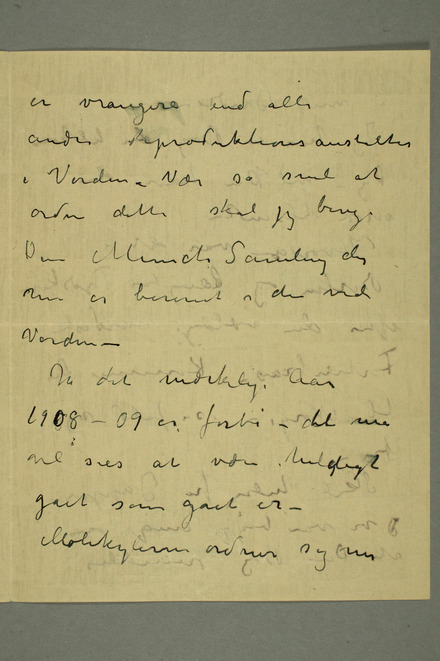 er vrangere end alle
andre Reproduktionsanstalter
i Verden – Vær så snil at
ordne dette skal jeg
Den Munchs Samling der
nu er berømt i den vide
Verden –
Ja det mærkelige Aar
1908 – 09 er forbi – det må
vel sies at være heldigt
gået som gået er –
Molekylerne ordner sig nu